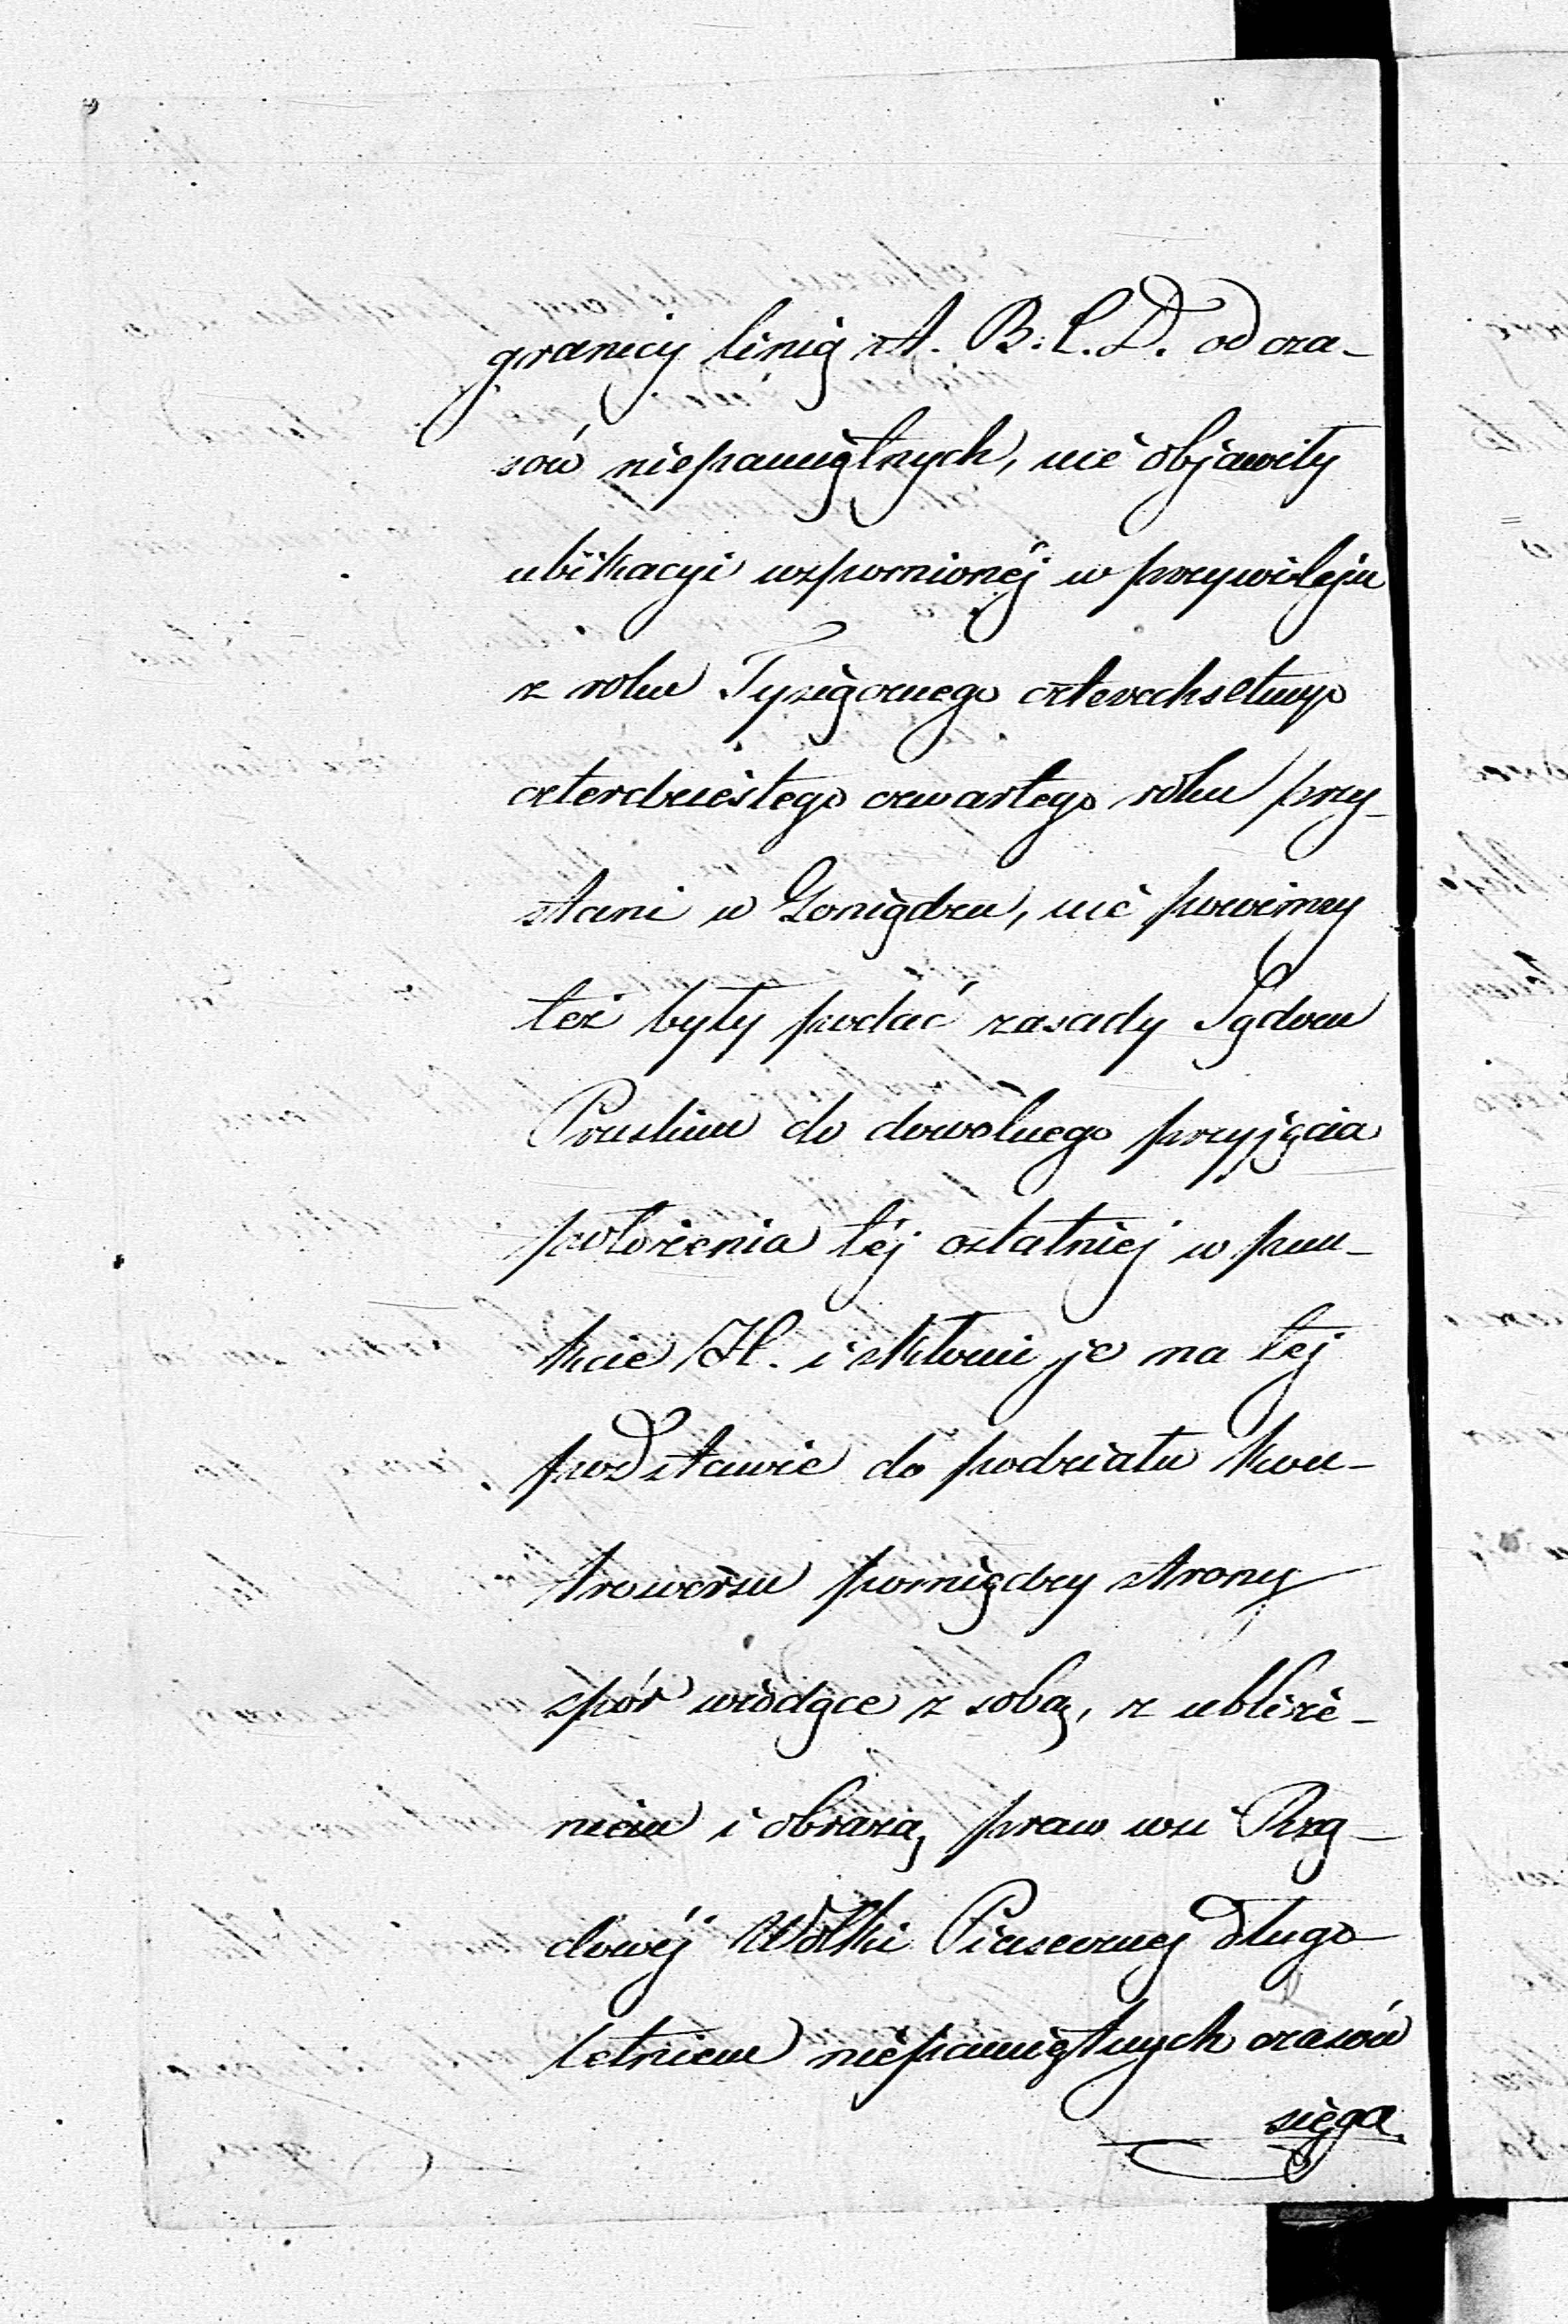 granicy linią A. B. C. D. od cza-
sów niepamiętnych, nie objawiły
ubikacyi wspomnionéj w przywileju
z roku Tysiącznego czterechsetnego
czterdziestego czwartego roku przy-
stani w Goniądzu, nie powinny
też były podać zasady Sądom
Pruskim do dowolnego przyjęcia
położenia téj ostatniej w pun-
kcie H. i skłonić je na tej
podstawie do podziału kon-
trowersu pomiędzy strony
spór wiodące z sobą, z ubliże-
niem i obrazą praw wsi Rzą-
dowéj Wólki Piasecznej długo
letniem niepamiętnych czasów
sięga